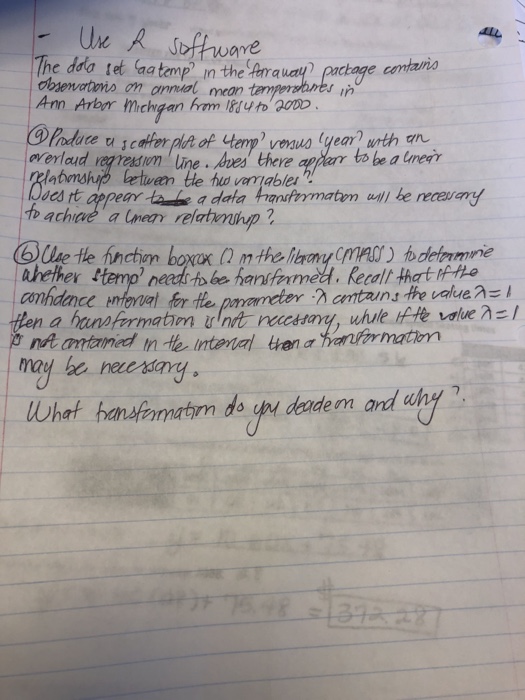 - Use R software
The data set 'aatemp' in the 'faraway' package contains
observations on annual mean temperatures in
Ann Arbor Michigan from 1854 to 2000.
(a) Produce a scatterplot of 'temp' versus 'year' with an
overlaid regression line. Does there appear to be a linear
relationship between the two variables?
Does it appear a data transformation will be necessary
to achieve a linear relationship?
(b) Use the function boxcox () in the library (MASS) to determine
whether 'temp' needs to be transformed. Recall that if the
confidence interval for the parameter λ contains the value λ=1
then a transformation is not necessary, while if the value λ=1
is not contained in the interval then a transformation
may be necessary.
What transformation do you decide on and why?
= 372.28